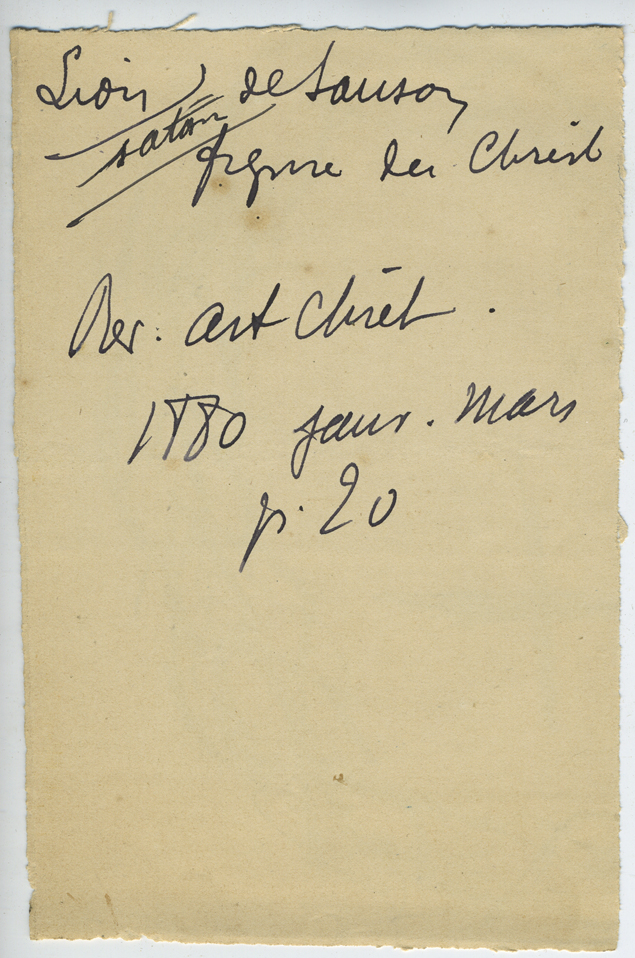 Lion de Sanson
satan
figure du Christ
Rev. art Chrét.
1880 janv. Mars
p. 20